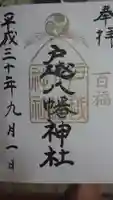 奉拝
百福
戸越八幡神社
平成三十年九月一日